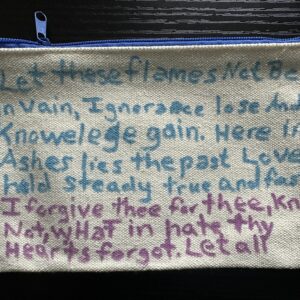 Let these flames Not Be
in Vain, Ignorance lose And
Knowelege gain. Here in
Ashes lies the past Love
held steady true and fas
I forgive thee for thee, kn
Not, wHaT in hate thy
Hearts forgot. Let all